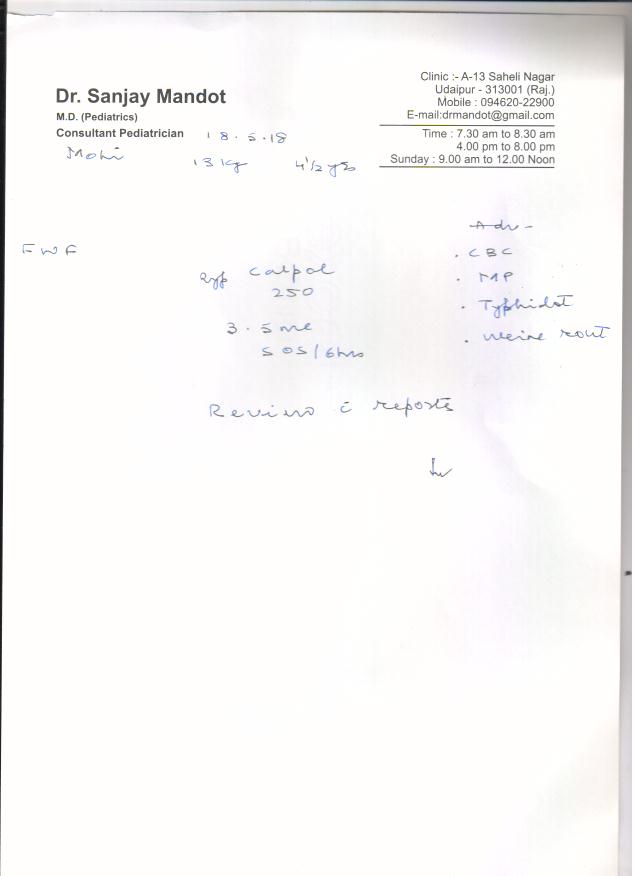 Clinic :- A-13 Saheli Nagar
Udaipur - 313001 (Raj.)
Mobile : 094620-22900
E-mail:drmandot@gmail.com
Time : 7.30 am to 8.30 am
4.00 pm to 8.00 pm
Sunday : 9.00 am to 12.00 Noon
Dr. Sanjay Mandot
M.D. (Pediatrics)
Consultant Pediatrician 18.5.18
13 kg 4 1/2 yrs
Adv-
. CBC
. MP
. Typhidot
. urine rout
FWF
Syp Calpol
250
3.5 ml
SOS/6hrs
Review c̄ reports